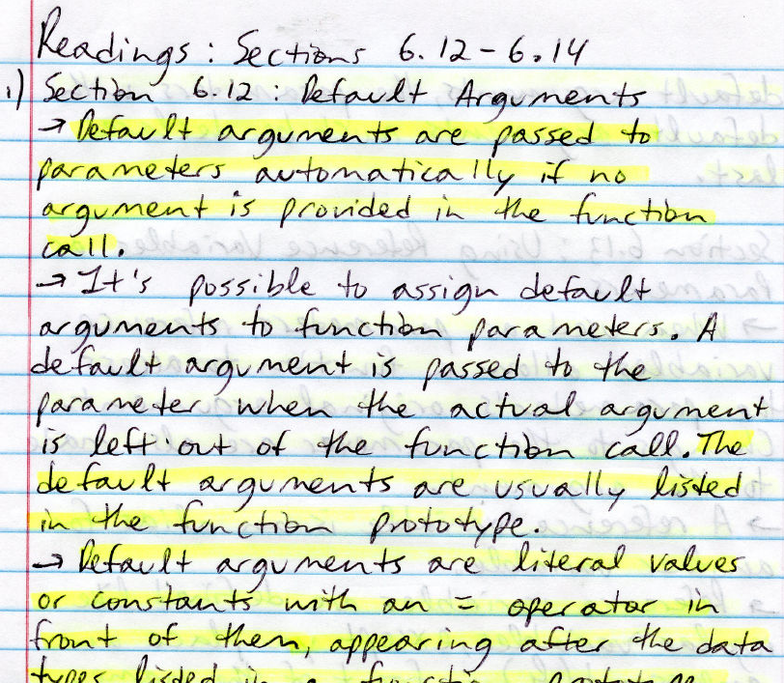 Readings: Sections 6.12-6.14
1) Section 6.12: Default Arguments
→ Default arguments are passed to
parameters automatically if no
argument is provided in the function
call.
→ It's possible to assign default
arguments to function parameters. A
default argument is passed to the
parameter when the actual argument
is left out of the function call. The
default arguments are usually listed
in the function prototype.
→ Default arguments are literal values
or constants with an = operator in
front of them, appearing after the data
types listed in a function prototype